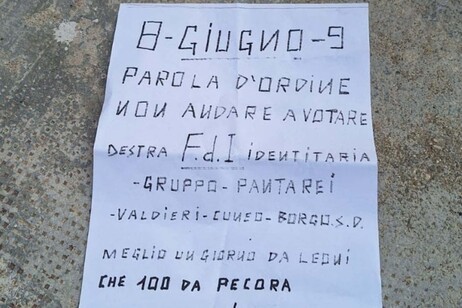 8-GIUGNO-9
PAROLA D'ORDINE
NON ANDARE A VOTARE
DESTRA F.d.I IDENTITARIA
-GRUPPO-PANTAREI
-VALDIERI-CUNEO-BORGO.S.D.
MEGLIO UN GIORNO DA LEONI
CHE 100 DA PECORA